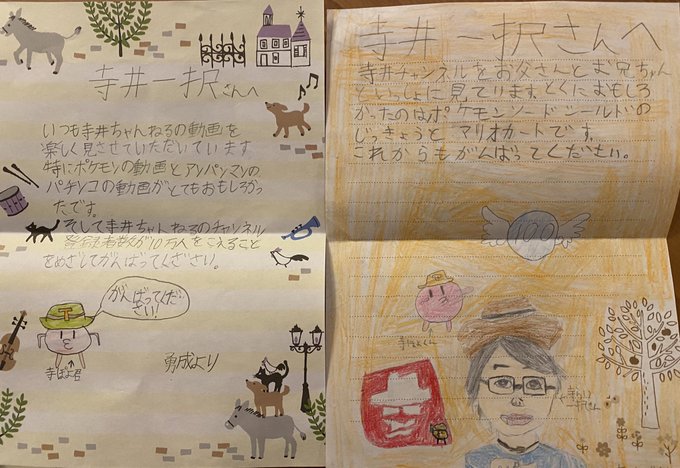 寺井一択さんへ
いつも寺井ちゃんねるの動画を
楽しく見させていただいています。
特にポケモンの動画とアンパンマンの
パチンコの動画がとてもおもしろかっ
たです。
そして寺井ちゃんねるのチャンネル
登録者数が10万人をこえること
をめざしてがんばってください。
がんばってくだ
さい!
T
寺ぱよ君
勇成より
寺井一択さんへ
寺井チャンネルをお父さんとお兄ちゃん
といっしょに見ています。とくにおもしろ
かったのはポケモンソードシールドの
じっきょうと マリオカートです。
これからもがんばってください。
100
T
一択さん